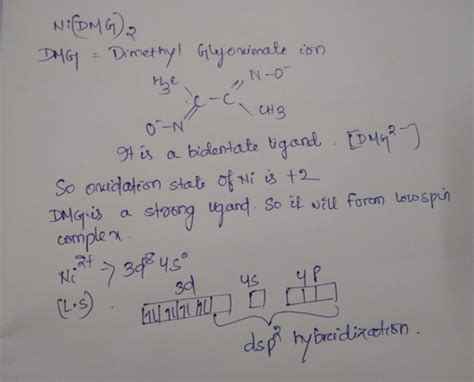 Ni(DMG)2
DMG = Dimethyl Glyoximate ion
H3C N-O-
C-C
O- -N CH3
It is a bidentate ligand. [DMG2-]
So oxidation state of Ni is +2
DMG is a strong ligand. So it will form low spin
complex.
Ni2+ → 3d8 4s0
(L.S). 3d 4s 4p
1l 1l 1l 1l
dsp2 hybridization.